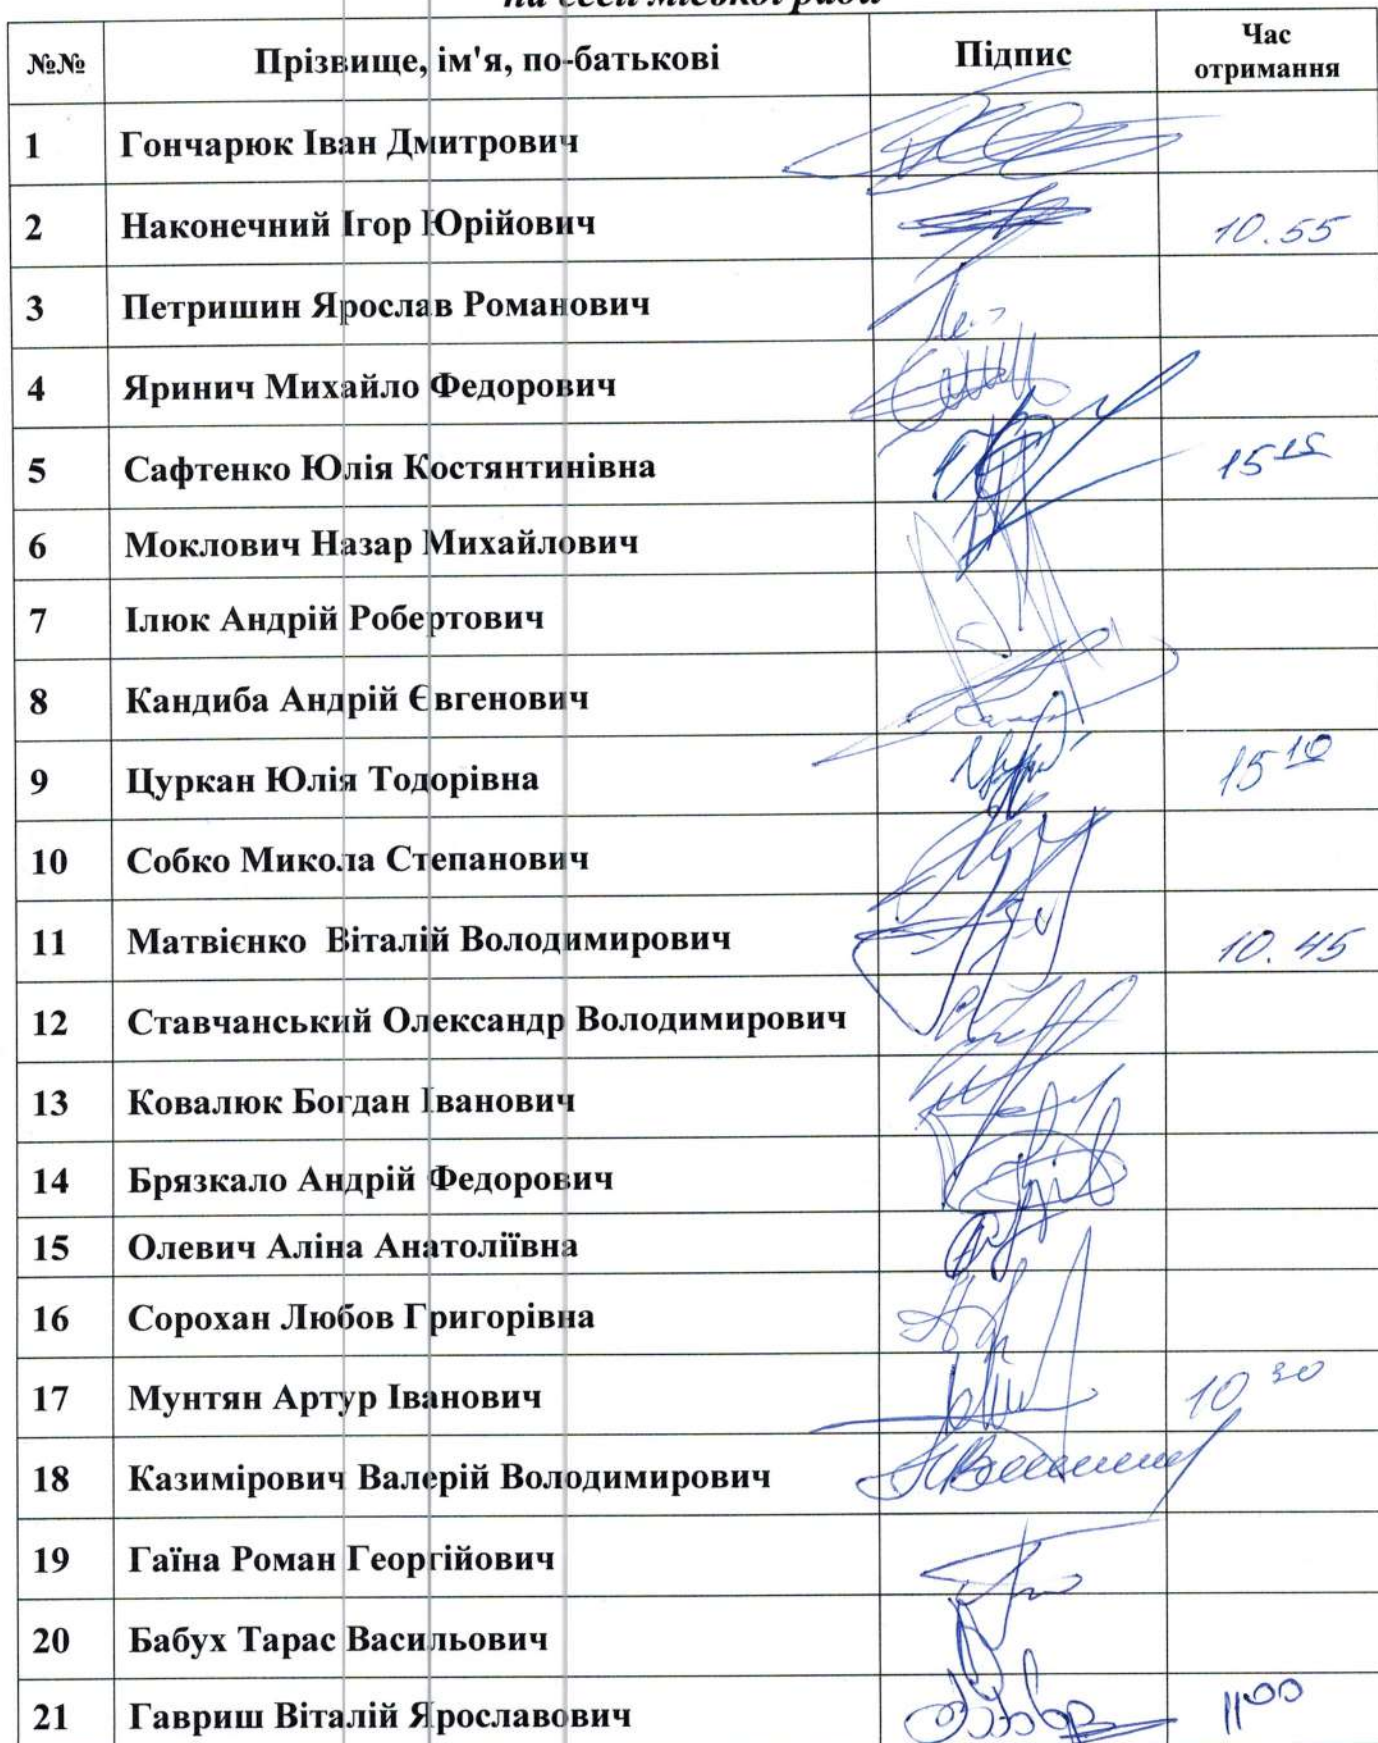 на сесії міської ради
№№ Прізвище, ім'я, по-батькові Підпис Час отримання
1 Гончарюк Іван Дмитрович
2 Наконечний Ігор Юрійович 10.55
3 Петришин Ярослав Романович
4 Яринич Михайло Федорович
5 Сафтенко Юлія Костянтинівна 15 15
6 Моклович Назар Михайлович
7 Ілюк Андрій Робертович
8 Кандиба Андрій Євгенович
9 Цуркан Юлія Тодорівна 15 10
10 Собко Микола Степанович
11 Матвієнко Віталій Володимирович 10.45
12 Ставчанський Олександр Володимирович
13 Ковалюк Богдан Іванович
14 Брязкало Андрій Федорович
15 Олевич Аліна Анатоліївна
16 Сорохан Любов Григорівна
17 Мунтян Артур Іванович 10 30
18 Казимірович Валерій Володимирович
19 Гаїна Роман Георгійович
20 Бабух Тарас Васильович
21 Гавриш Віталій Ярославович 11 00